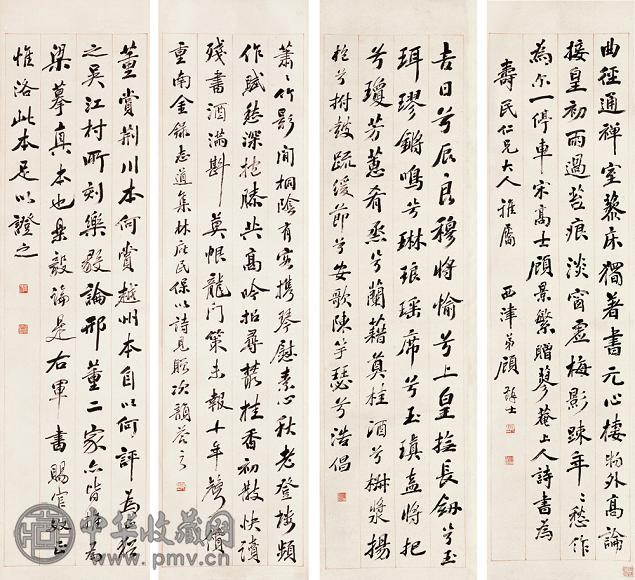 曲径通禅室藜床独著书元心棲物外高論
接皇初雨過苔痕淡窗虚梅影踈年〻愁作
為尔一停車宋高士顧景繁贈蓼菴上人詩書為
壽民仁兄大人雅屬 西津弟顧
吉日兮辰良穆將愉兮上皇撫長劒兮玉
珥璆鏘鳴兮琳琅瑶席兮玉瑱盍將把
兮瓊芳蕙肴烝兮蘭藉奠桂酒兮椒漿揚
枹兮拊鼓疏缓節兮安歌陳竽瑟兮浩倡
蕭〻竹影間桐陰有客携琴慰素心秋老登樓頻
作賦愁深抱膝共高吟招尋叢桂香初散快讀
殘書酒滿斟莫恨龍门策未報十年聲價
重南金錄志道集林庇民保以詩見貽次韻答之
董賞荆川本何賞越州本自以何評為
之吴江村所刻樂毅論邢董二家亦皆
梁摹真本也樂毅論是右軍書賜官奴正
惟洛此本足以證之
中华收藏网
www.pmv.cn